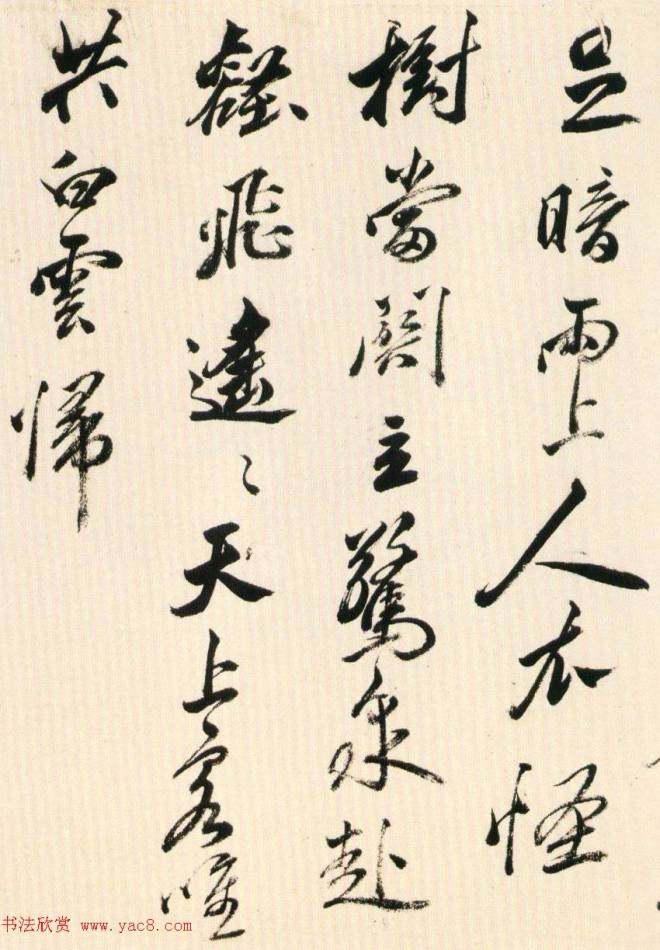 足暗雨上人衣怪
樹當關立驚泉赴
壑飛遙〻天上客唯
共白雲歸
书法欣赏 www.yac8.com